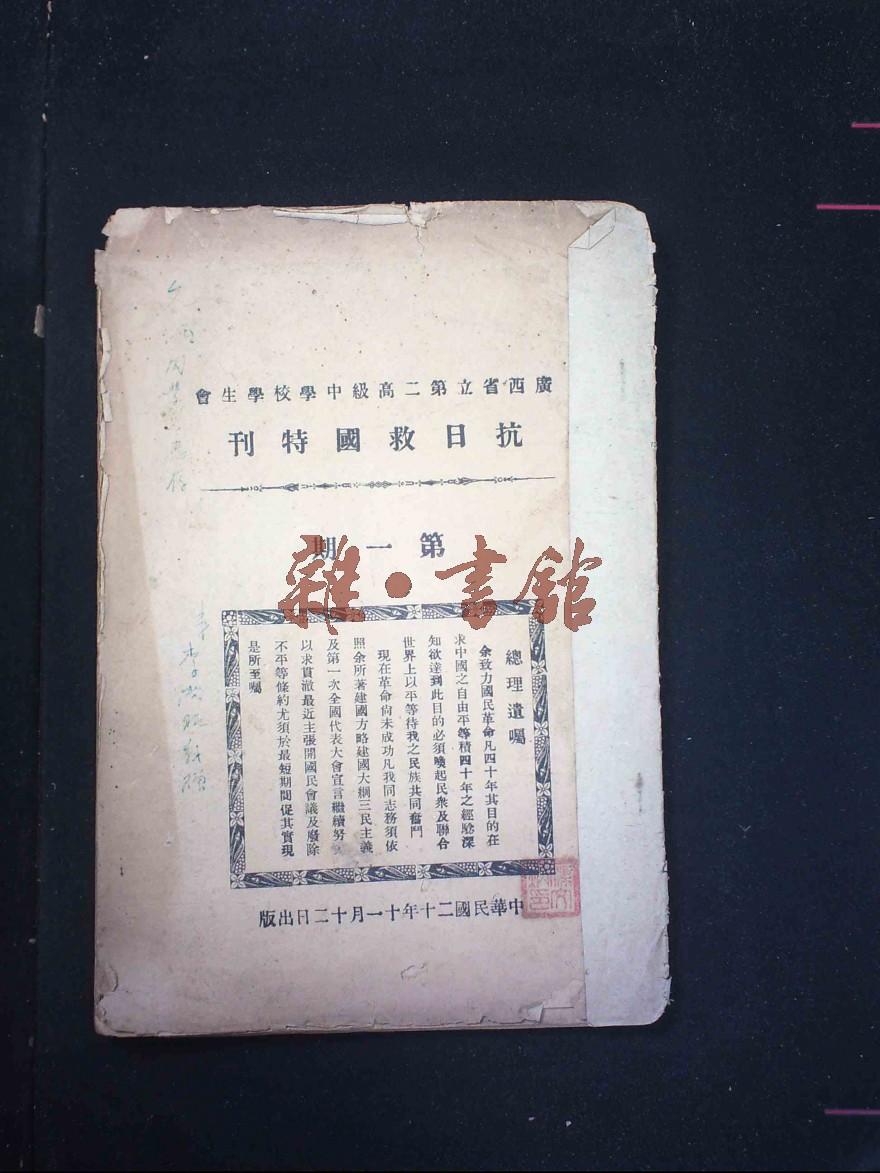 廣西省立第二高級中學校學生會
抗日救國特刊
第一期
雜·書館
總理遺囑
余致力國民革命凡四十年其目的在
求中國之自由平等積四十年之經驗深
知欲達到此目的必須喚起民衆及聯合
世界上以平等待我之民族共同奮鬥
現在革命尙未成功凡我同志務須依
照余所著建國方略建國大綱三民主義
及第一次全國代表大會宣言繼續努
以求貫澈最近主張開國民會議及廢除
不平等條約尤須於最短期間促其實現
是所至囑
中華民國二十年十一月十二日出版